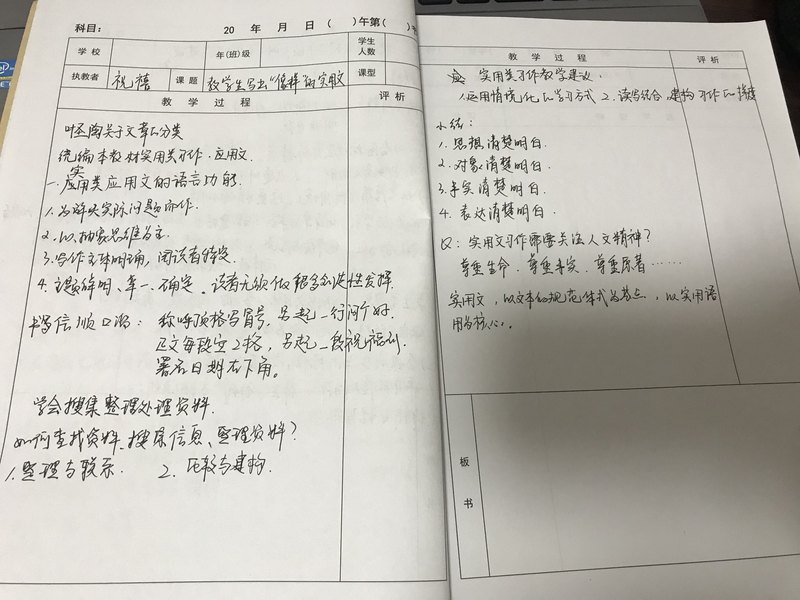 科目： 20 年 月 日（ ）午第（ ）
学校 年(班)级 学生人数
执教者 祝禧 课题 教学生写出"像样"的实用文 课型
教 学 过 程 评 析
叶圣陶关于文章的分类
统编本教材实用类习作·应用文
实
一、应用类应用文的语言功能
1.为解决实际问题而作.
2.以抽象思维为主.
3.写作主体明确，阅读者特定.
4.主题鲜明、单一、确定.读者无须做很多创造性发挥.
书写信顺口溜：称呼顶格写冒号，另起一行问个好.
正文每段空2格，另起一段祝福到.
署名日期右下角。
学会搜集整理处理资料.
如何查找资料、搜集信息、整理资料？
1.整理与联系. 2.比较与建构.
教 学 过 程 评 析
实用类习作教学建议：
1.运用情境化的学习方式 2.读写结合，建构习作的
小结：
1.思想清楚明白.
2.对象清楚明白.
3.事实清楚明白.
4.表达清楚明白.
Q：实用文习作需要关注人文精神？
尊重生命、尊重事实、尊重原著……
实用文，以文本的规范体式为基点，以实用语
用为核心。
板书